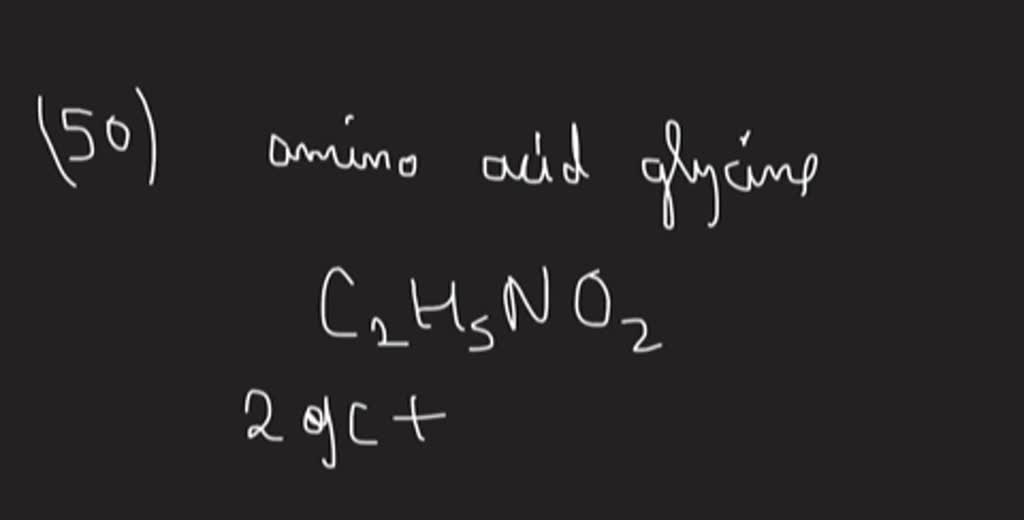 (50) amino acid glycine
C₂H₅NO₂
2 gC +